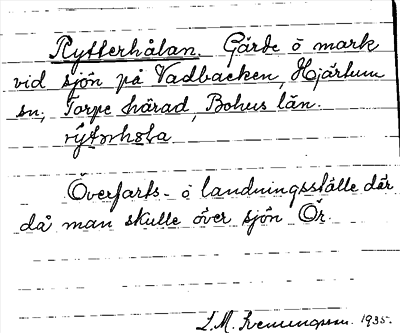 Rytterhålan. Gärde o mark
vid sjön på Vadbacken, Hjärtum
sn, Torpe härad, Bohus län.
Överfarts- o landningsställe där
då man skulle över sjön Ör.
L.M. 1935.